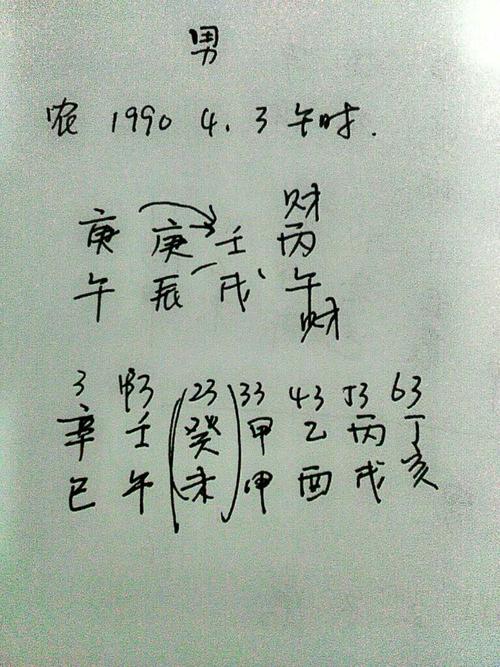 男
农 1990 4.3 午时.
财
庚 庚 壬 丙
午 辰 戌 午
财
3 13 23 33 43 53 63
辛 壬 癸 甲 乙 丙 丁
巳 午 未 申 酉 戌 亥